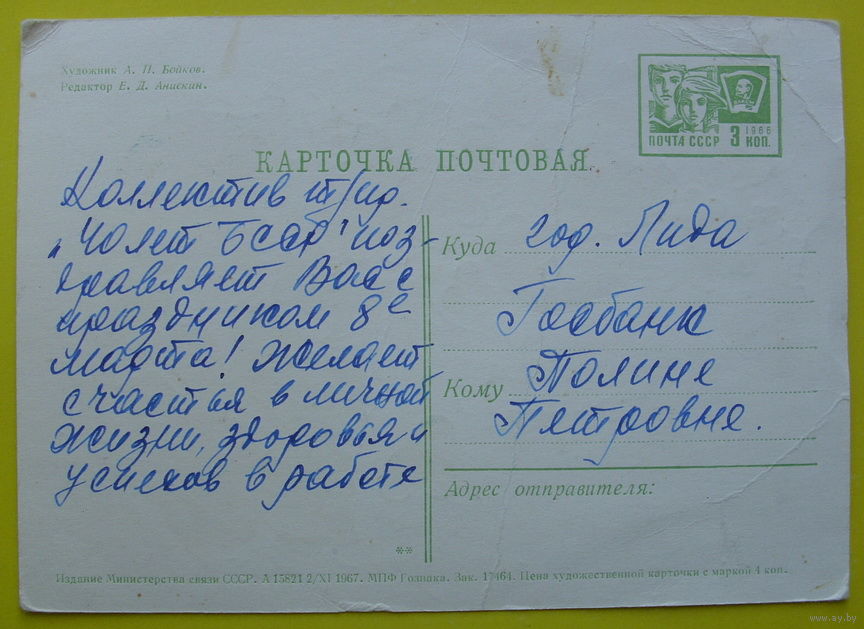 Художник А. П. Бойков.
Редактор Е. Д. Анискин.
1966
ПОЧТА СССР 3 КОП.
КАРТОЧКА ПОЧТОВАЯ
Коллектив
„ 40 лет БССР" поз-
дравляет Вас с
праздником 8е
марта! Желает
счастья в личной
жизни, здоровья и
успехов в работе
Куда гор. Лида
Госбанк
Кому Полине
Петровне.
Адрес отправителя:
**
Издание Министерства связи СССР. А 15821 2/XI 1967. МПФ Гознака. Зак. 17464. Цена художественной карточки с маркой 4 коп.
www.ay.by